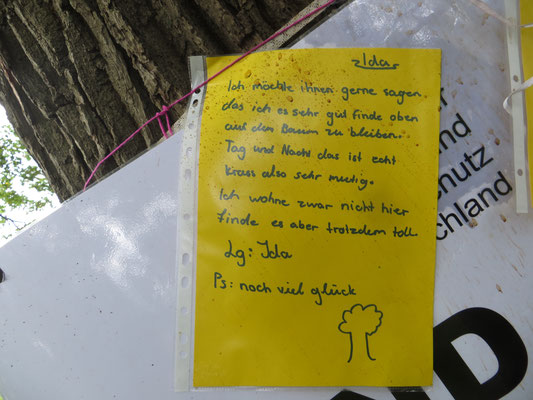 Ida
Ich möchte ihnen gerne sagen,
das ich es sehr gut finde oben
auf den Baum zu bleiben.
Tag und Nacht das ist echt
krass also sehr mutig.
Ich wohne zwar nicht hier
finde es aber trotzdem toll.
Lg: Ida
Ps: noch viel glück
nd
hutz
chland